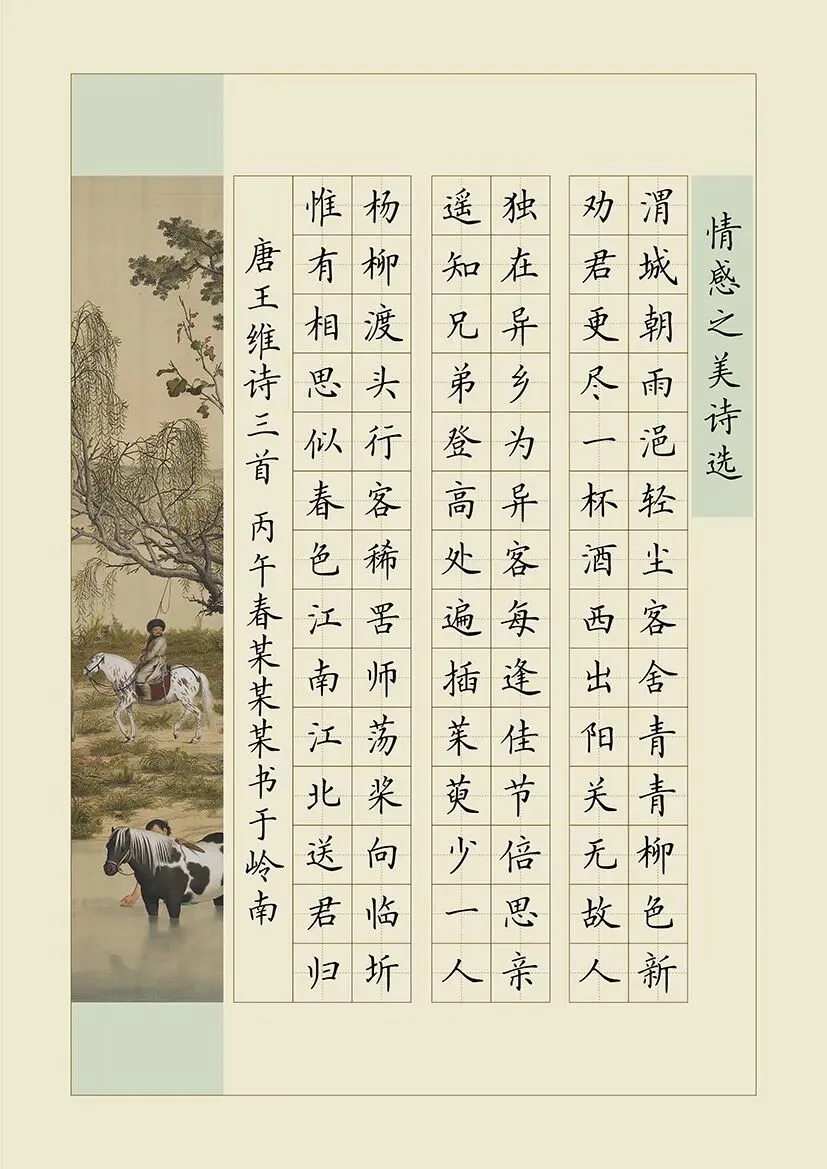 情感之美诗选
渭城朝雨浥轻尘客舍青青柳色新
劝君更尽一杯酒西出阳关无故人
独在异乡为异客每逢佳节倍思亲
遥知兄弟登高处遍插茱萸少一人
杨柳渡头行客稀罟师荡桨向临圻
惟有相思似春色江南江北送君归
唐王维诗三首 丙午春某某某书于岭南